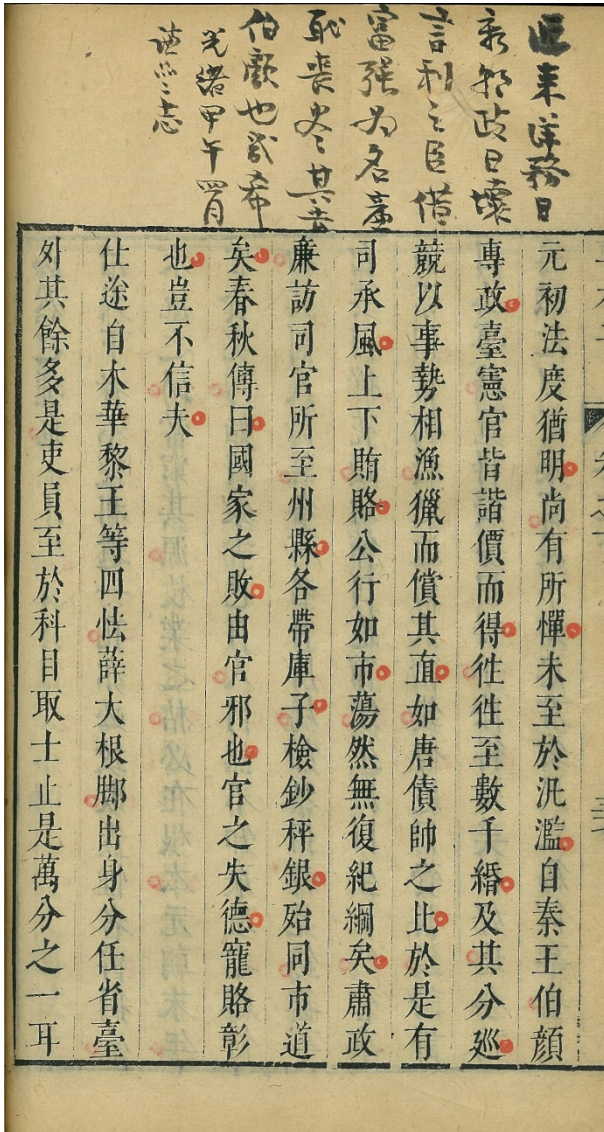 近來洋務日
新朝政日壞
言利之臣借
富強為名廉
恥喪盡其奇
伯顏也幾希
光緒甲午四月
志
元初法度猶明尚有所憚未至於汎濫自秦王伯顏
專政臺憲官皆諧價而得徃徃至數千緡及其分廵
競以事勢相漁獵而償其直如唐債帥之比於是有
司承風上下賄賂公行如市蕩然無復紀綱矣肅政
廉訪司官所至州縣各帶庫子檢鈔秤銀殆同市道
矣春秋傳曰國家之敗由官邪也官之失德寵賂彰
也豈不信夫
仕途自木華黎王等四怯薛大根脚出身分任省臺
外其餘多是吏員至於科目取士止是萬分之一耳